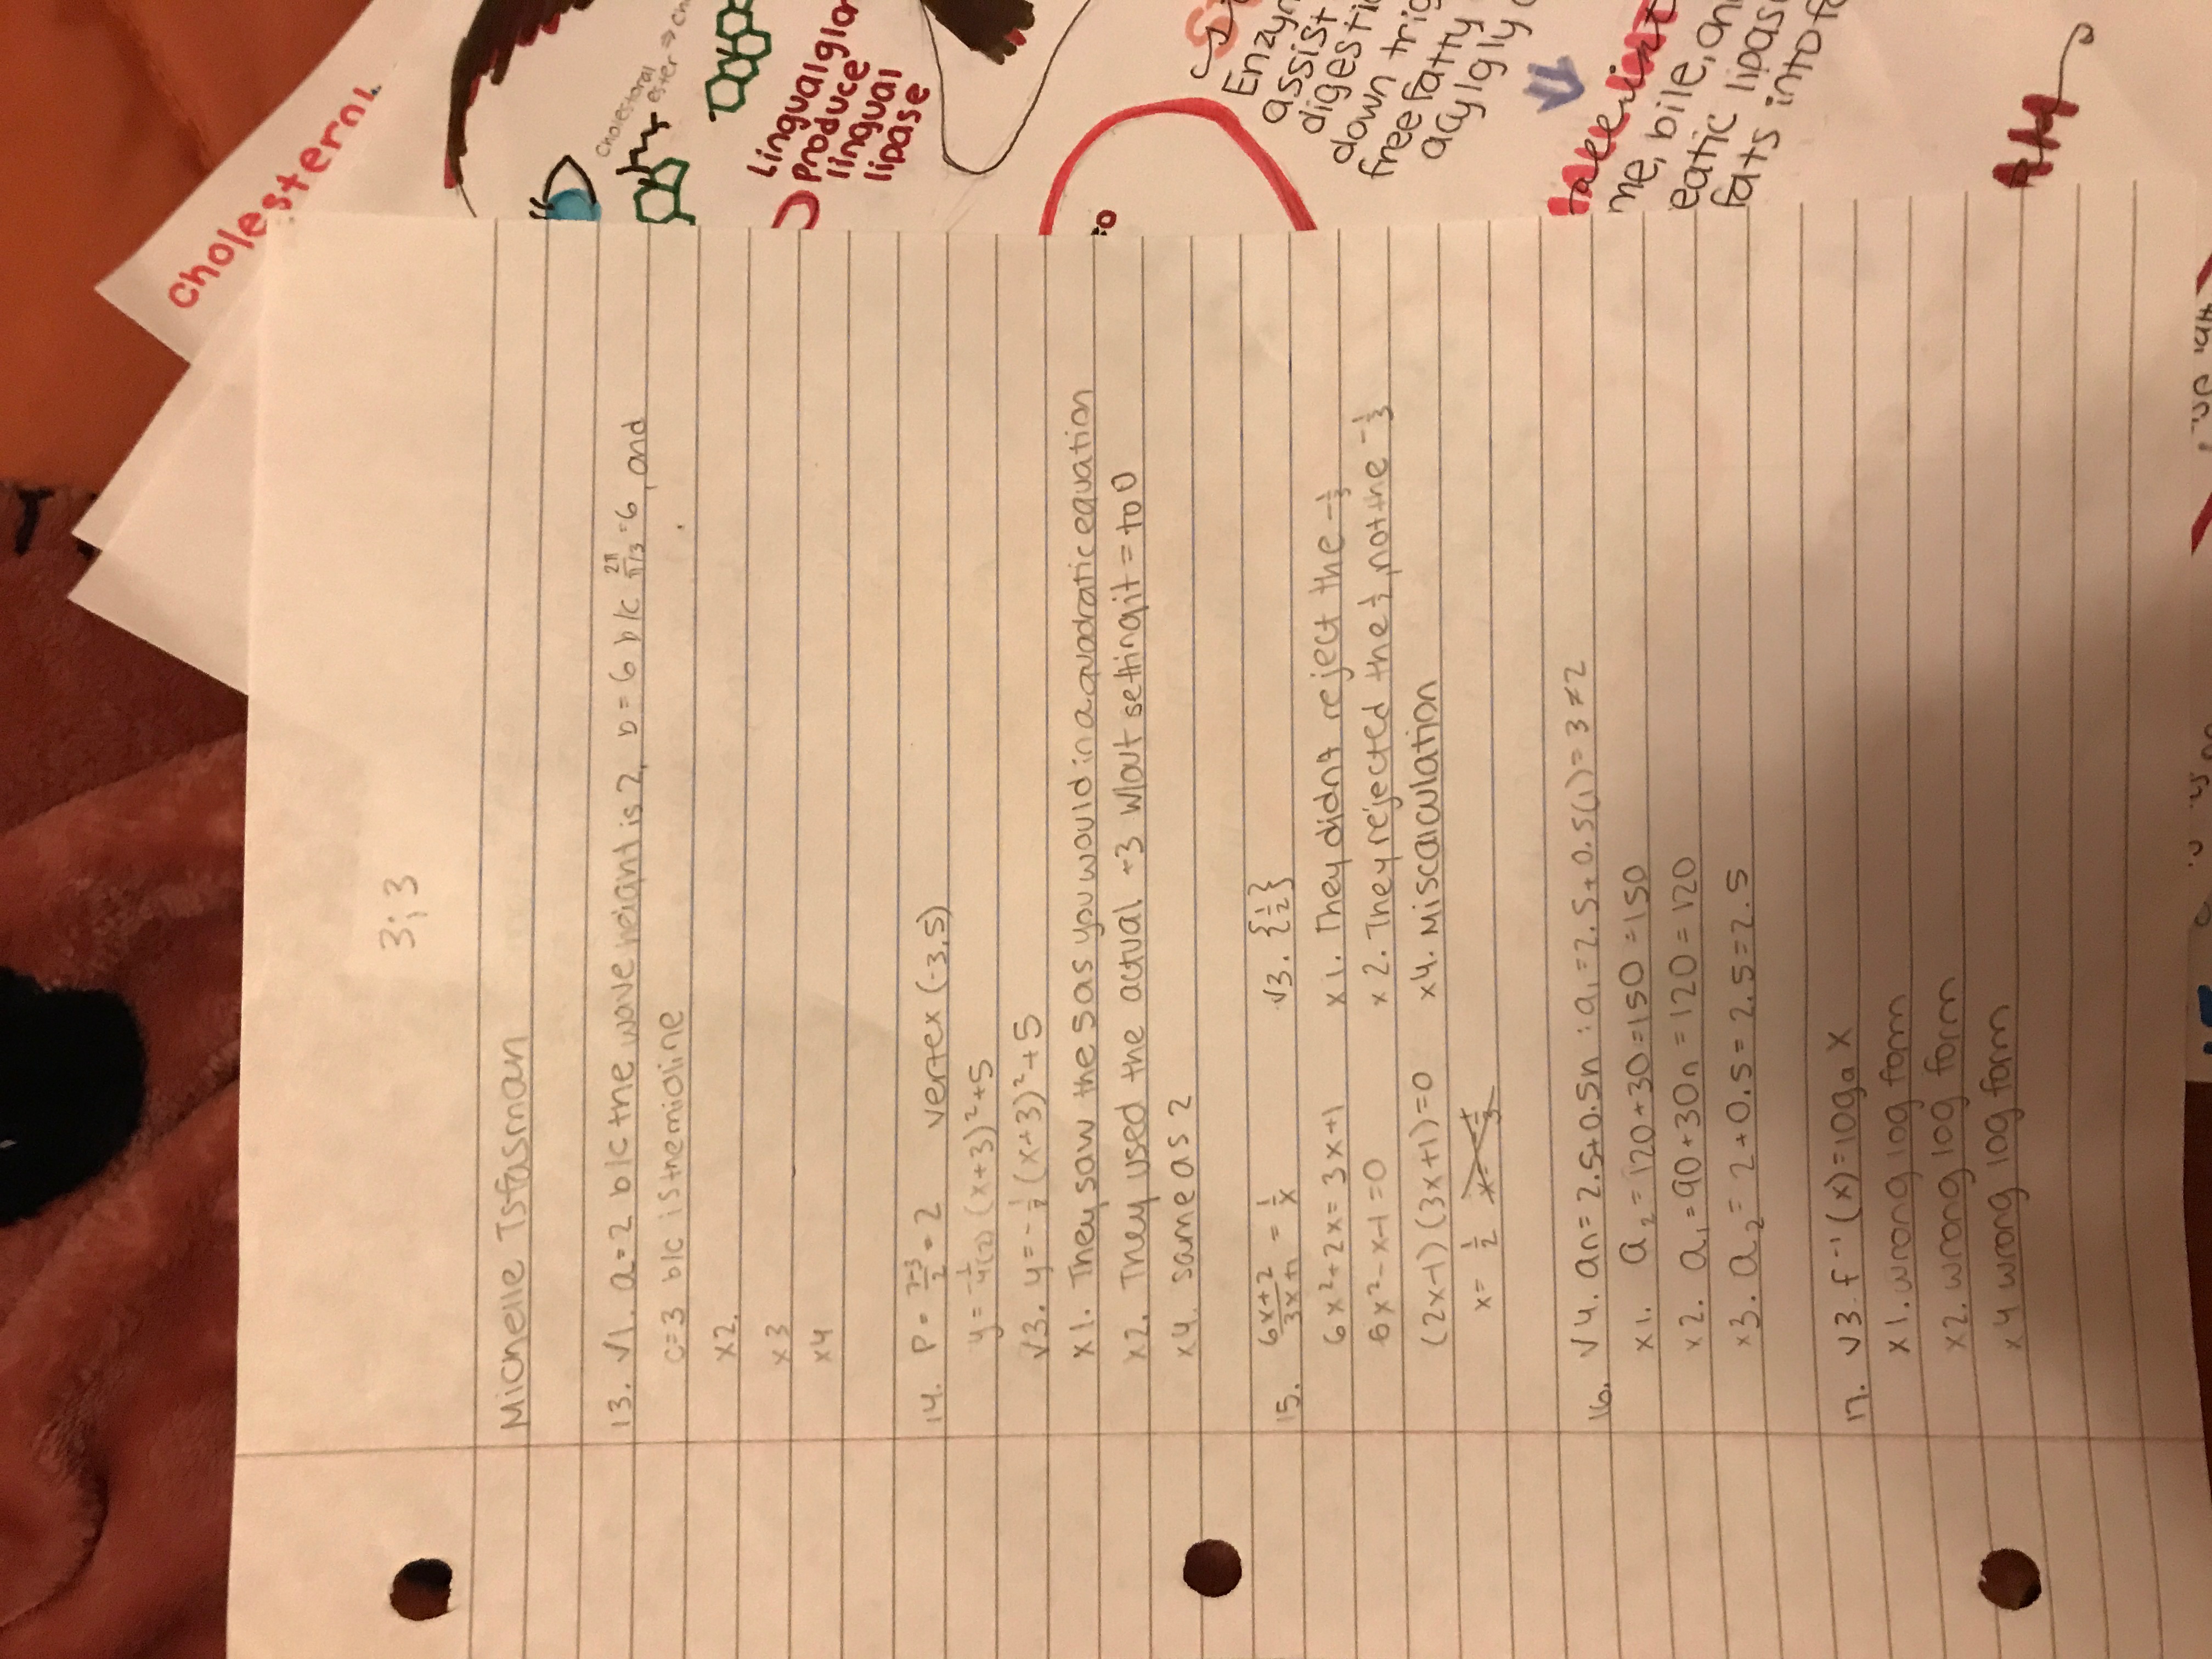 cholesterol
3;3
Michelle Tsfasman
13. √1. a=2 b/c the wave height is 2, b=6 b/c 2π/π/3=6, and
c=3 b/c is the midline
x2.
x3
x4
14. P= 7-3/2 = 2 vertex (-3,5)
y = -1/4(2) (x+3)²+5
√3. y=- (x+3)²+5
x1. They saw the 5 as you would in a quadratic equation
x2. They used the actual +3 w/out setting it = to 0
x4. same as 2
15. 6x+2/3x+1 = 1/x √3. {1/2}
6x²+2x=3x+1 x1. They didn't reject the -1/3
6x²-x-1=0 x2. They rejected the 1/2, not the -1/3
(2x-1)(3x+1)=0 x4. Miscalculation
x= 1/2 x=-1/3
16. √4. an=2.5+0.5n : a₁=2.5+0.5(1)=3≠2
x1. a₂=120+30=150=150
x2. a₁=90+30n=120=120
x3. a₂=2+0.5=2.5=2.5
17. √3. f⁻¹(x)=logₐX
x1. wrong log form
x2. wrong log form
x4 wrong log form
cholestoral
ester ⇒
Lingual
produce
lingual
lipase
assist
down
free fatty
me, bile,
fats into